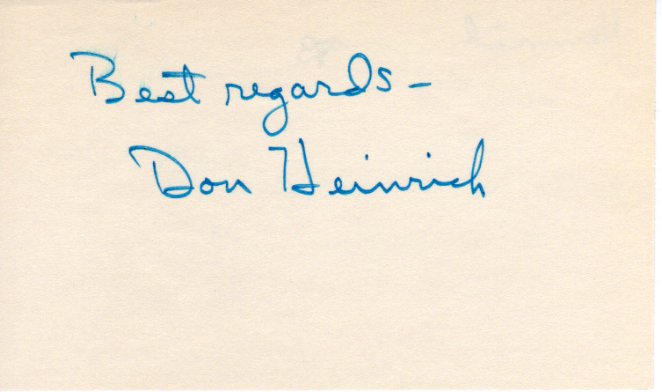 Best regards –
Don Heinrich